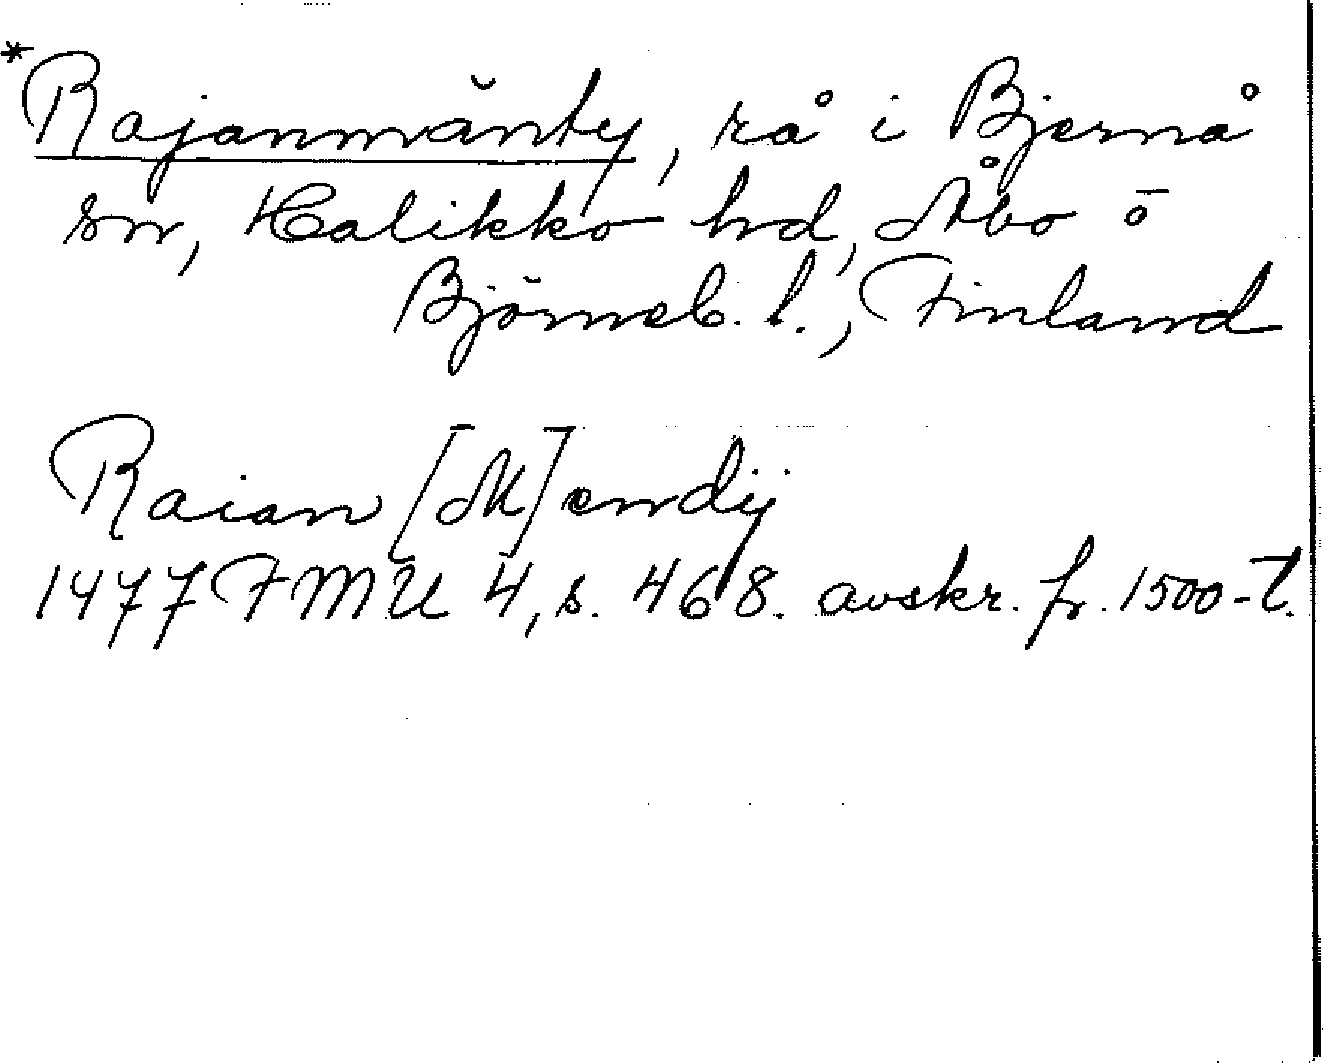 *Rajanmänty, rå i Bjernå
sn, Halikko hd, Åbo o
Björneb. l., Finland
Raian [M]endÿ
1477 FMU 4, s. 468. avskr. fr. 1500-t.